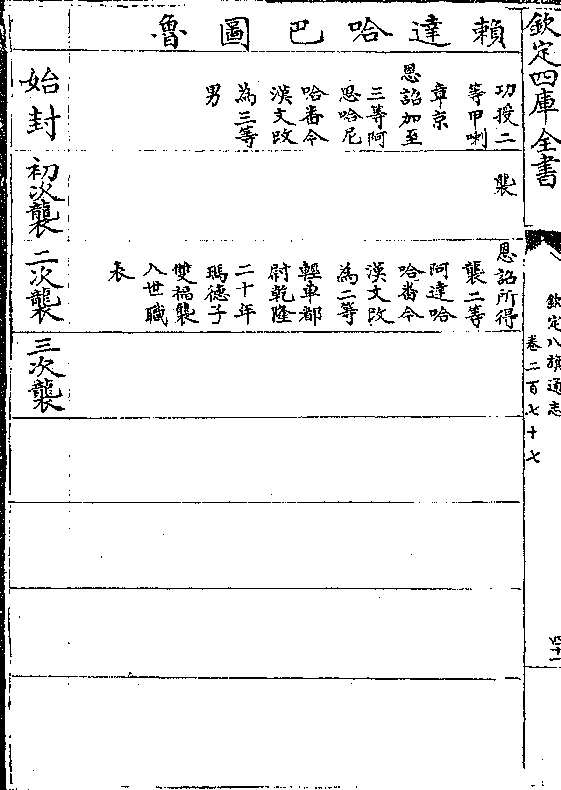 欽定四庫全書
欽定八旗通志
卷二百七十七
四十一
賴達哈巴圖魯
始封
功授二
等甲喇
章京
恩詔加至
三等阿
思哈尼
哈番今
漢文改
為三等
男
初次襲
襲
二次襲
恩詔所得
襲二等
阿達哈
哈番今
漢文改
為二等
輕車都
尉乾隆
二十年
瑪德子
雙福襲
入世職
表
三次襲